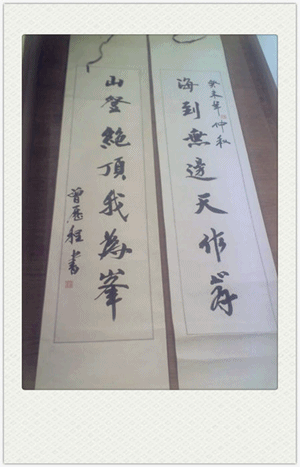 癸未年仲秋
海到無邊天作岸
山登絕頂我為峯
曾程書